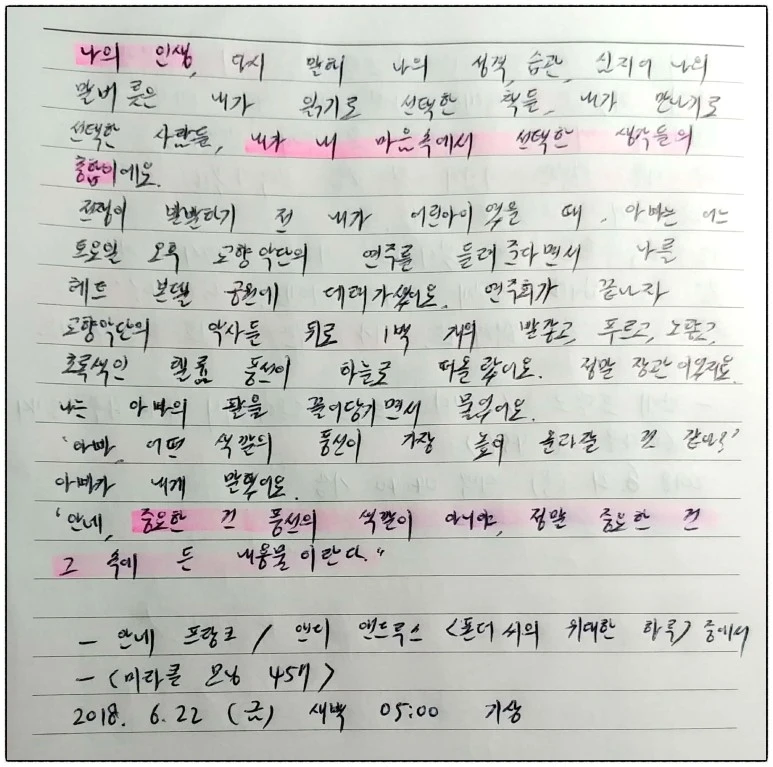 나의 인생, 다시 말해 나의 성격, 습관, 심지어 나의
말버릇은 내가 읽기로 선택한 책들, 내가 만나기로
선택한 사람들, 내가 내 마음속에서 선택한 생각들의
총합이에요.
전쟁이 발발하기 전 내가 어린아이였을 때, 아빠는 어느
토요일 오후 교향악단의 연주를 들려준다면서 나를
헤트 본델 공원에 데려가셨어요. 연주회가 끝나자
교향악단의 악사들 뒤로 1백 개의 빨갛고, 푸르고, 노랗고,
초록색인 헬륨 풍선이 하늘로 떠올랐어요. 정말 장관이었지요.
나는 아빠의 팔을 끌어당기면서 물었어요.
'아빠, 어떤 색깔의 풍선이 가장 높이 올라갈 것 같아요?'
아빠가 내게 말했어요.
'안네, 중요한 건 풍선의 색깔이 아니야, 정말 중요한 건
그 속에 든 내용물이란다."
- 안네 프랑크 / 앤디 앤드루스 <폰더씨의 위대한 하루> 중에서
- <미라클 모닝 457>
2018. 6. 22 (금) 새벽 05:00 기상